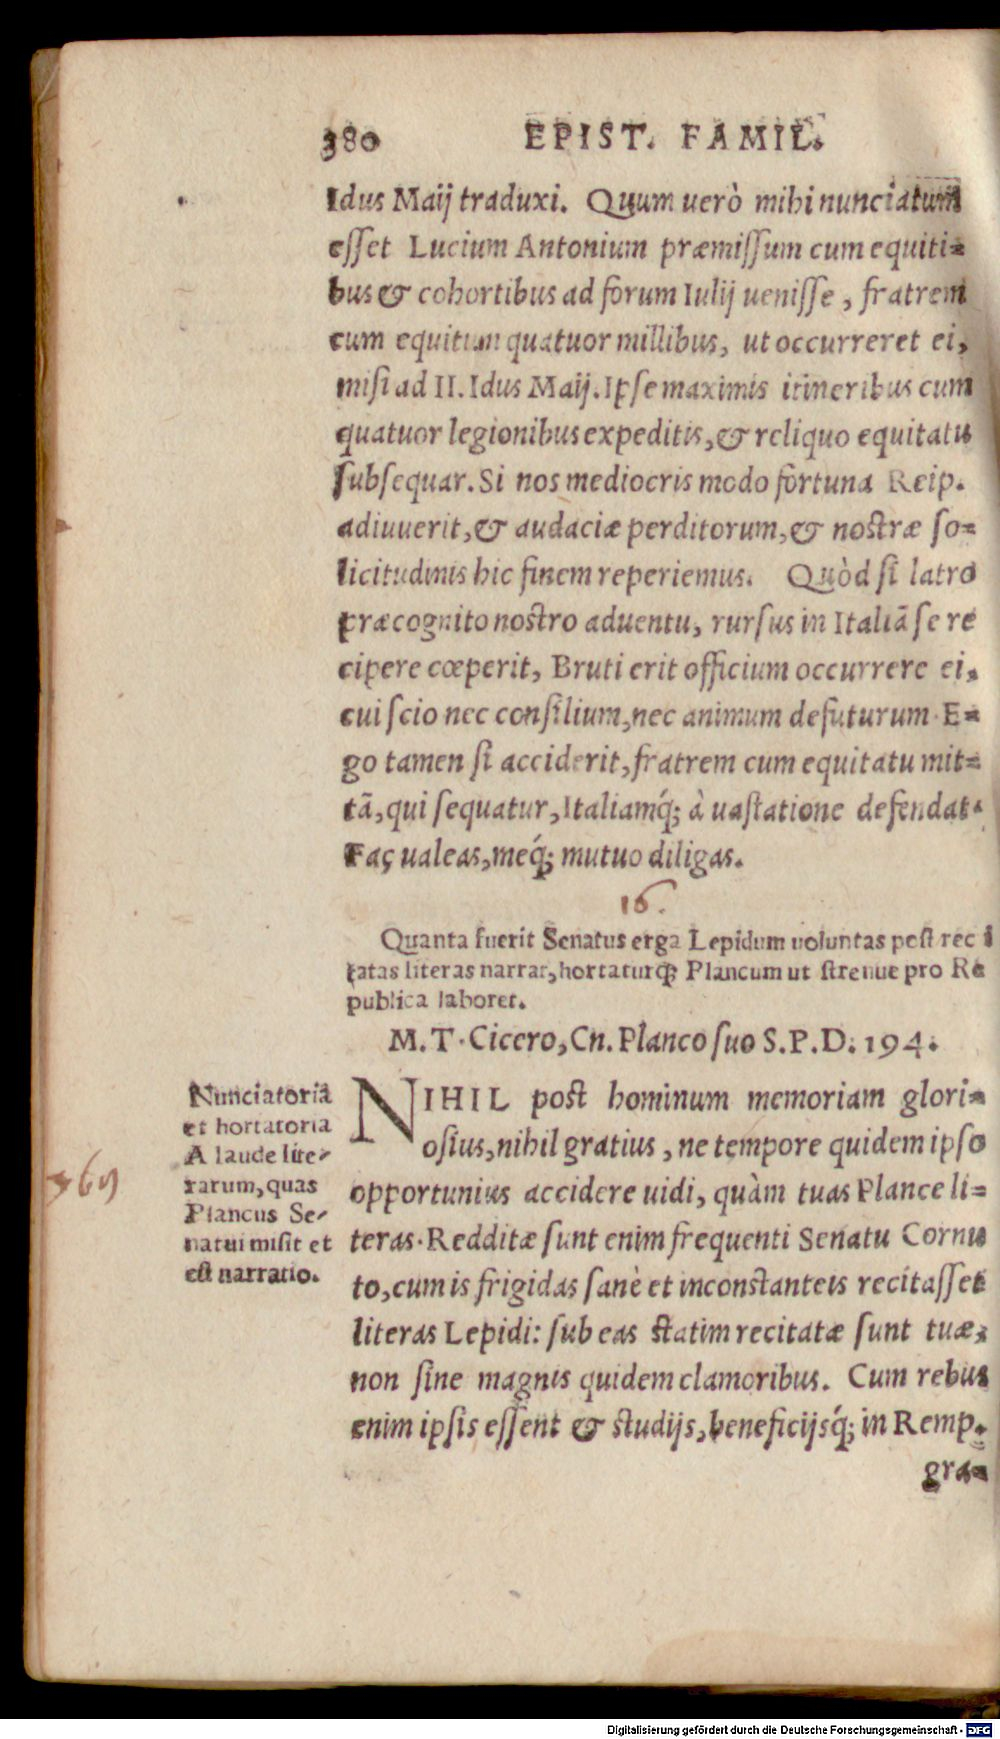 380 EPIST. FAMIL.
Idus Maij traduxi. Quum uerò mihi nunciatum
esset Lucium Antonium præmissum cum equiti=
bus & cohortibus ad forum Iulij uenisse, fratrem
cum equitum quatuor millibus, ut occurreret ei,
misi ad II. Idus Maij. Ipse maximis itineribus cum
quatuor legionibus expeditis, & reliquo equitatu
subsequar. Si nos mediocris modo fortuna Reip.
adiuuerit, & audaciæ perditorum, & nostræ so=
licitudinis hic finem reperiemus. Quòd si latro
præcognito nostro aduentu, rursus in Italiā se re
cipere cœperit, Bruti erit officium occurrere ei,
cui scio nec consilium, nec animum defuturum. E=
go tamen si acciderit, fratrem cum equitatu mit=
tā, qui sequatur, Italiamq́; à uastatione defendat.
Fac ualeas, meq́; mutuo diligas.
16.
Quanta fuerit Senatus erga Lepidum uoluntas post reci
tatas literas narrat, hortaturq́; Plancum ut strenue pro Re
publica laboret.
M. T. Cicero, Cn. Planco suo S. P. D. 194.
NIHIL post hominum memoriam glori=
osius, nihil gratius, ne tempore quidem ipso
opportunius accidere uidi, quàm tuas Plance li=
teras. Redditæ sunt enim frequenti Senatu Cornu
to, cum is frigidas sanè et inconstanteis recitasset
literas Lepidi: sub eas statim recitatæ sunt tuæ,
non sine magnis quidem clamoribus. Cum rebus
enim ipsis essent & studijs, beneficijsq́; in Remp.
gra=
Nunciatoriā
et hortatoria
A laude lite-
rarum, quas
Plancus Se-
natui misit et
est narratio.
369
Digitalisierung gefördert durch die Deutsche Forschungsgemeinschaft - DFG